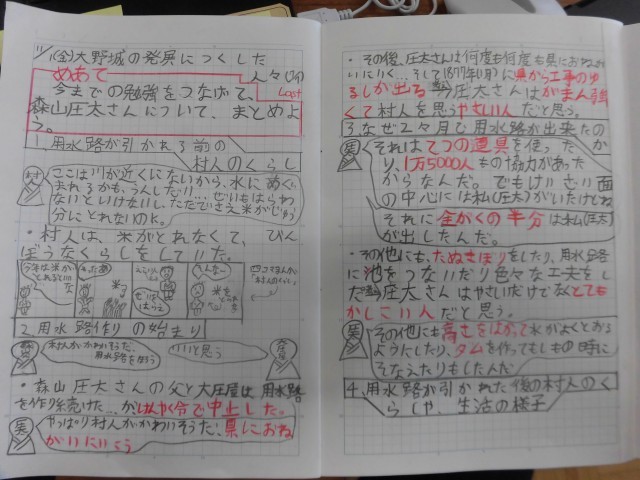 11/1(金)大野城の発展につくした
人々(17)
めあて
Last
今までの勉強をつなげて、
森山庄太さんについて、まとめよ
う。
1.用水路が引かれる前の
村人のくらし
村
ここは川が近くにないから、水にめぐ
まれるかも、うんしだい…ぜいもはらわ
ないといけないし、ただでさえ米がじゅう
分にとれないのに。
・村人は、米がとれなくて、びん
ぼうなくらしをしていた。
2.用水路作りの始まり
村人がかわいそうだ、
用水路を作ろう
いいと思う
・森山庄太さんの父と大庄屋は用水路
を作り続けた…がはんや令で中止した。
やっぱり村人がかわいそうだ、県におね
がいにいこう
・その後、庄太さんは何度も何度も県におねが
いにいく…そして1877年1月に県から工事のゆ
るしが出る
庄太さんはがまん強
くて村人を思うやさしい人だと思う。
3.なぜ2ヶ月で用水路が出来たの
か
それはてつの道具を使った
り、1万5000人もの協力があった
からなんだ。でもけいざい面
の中心には私(庄太)がいたけどね
それに金がくの半分は私(庄太)
が出したんだ。
・その他にも、たぬきほりをしたり、用水路
に池をつないだり色々な工夫をし
た
庄太さんはやさしいだけでなくとても
かしこい人だと思う。
その他にも高さをはかって水がよくとおる
ようにしたり、ダムを作ってもしもの時に
そなえたりもしたんだ
4.用水路が引かれた後の村人のく
らしや、生活の様子